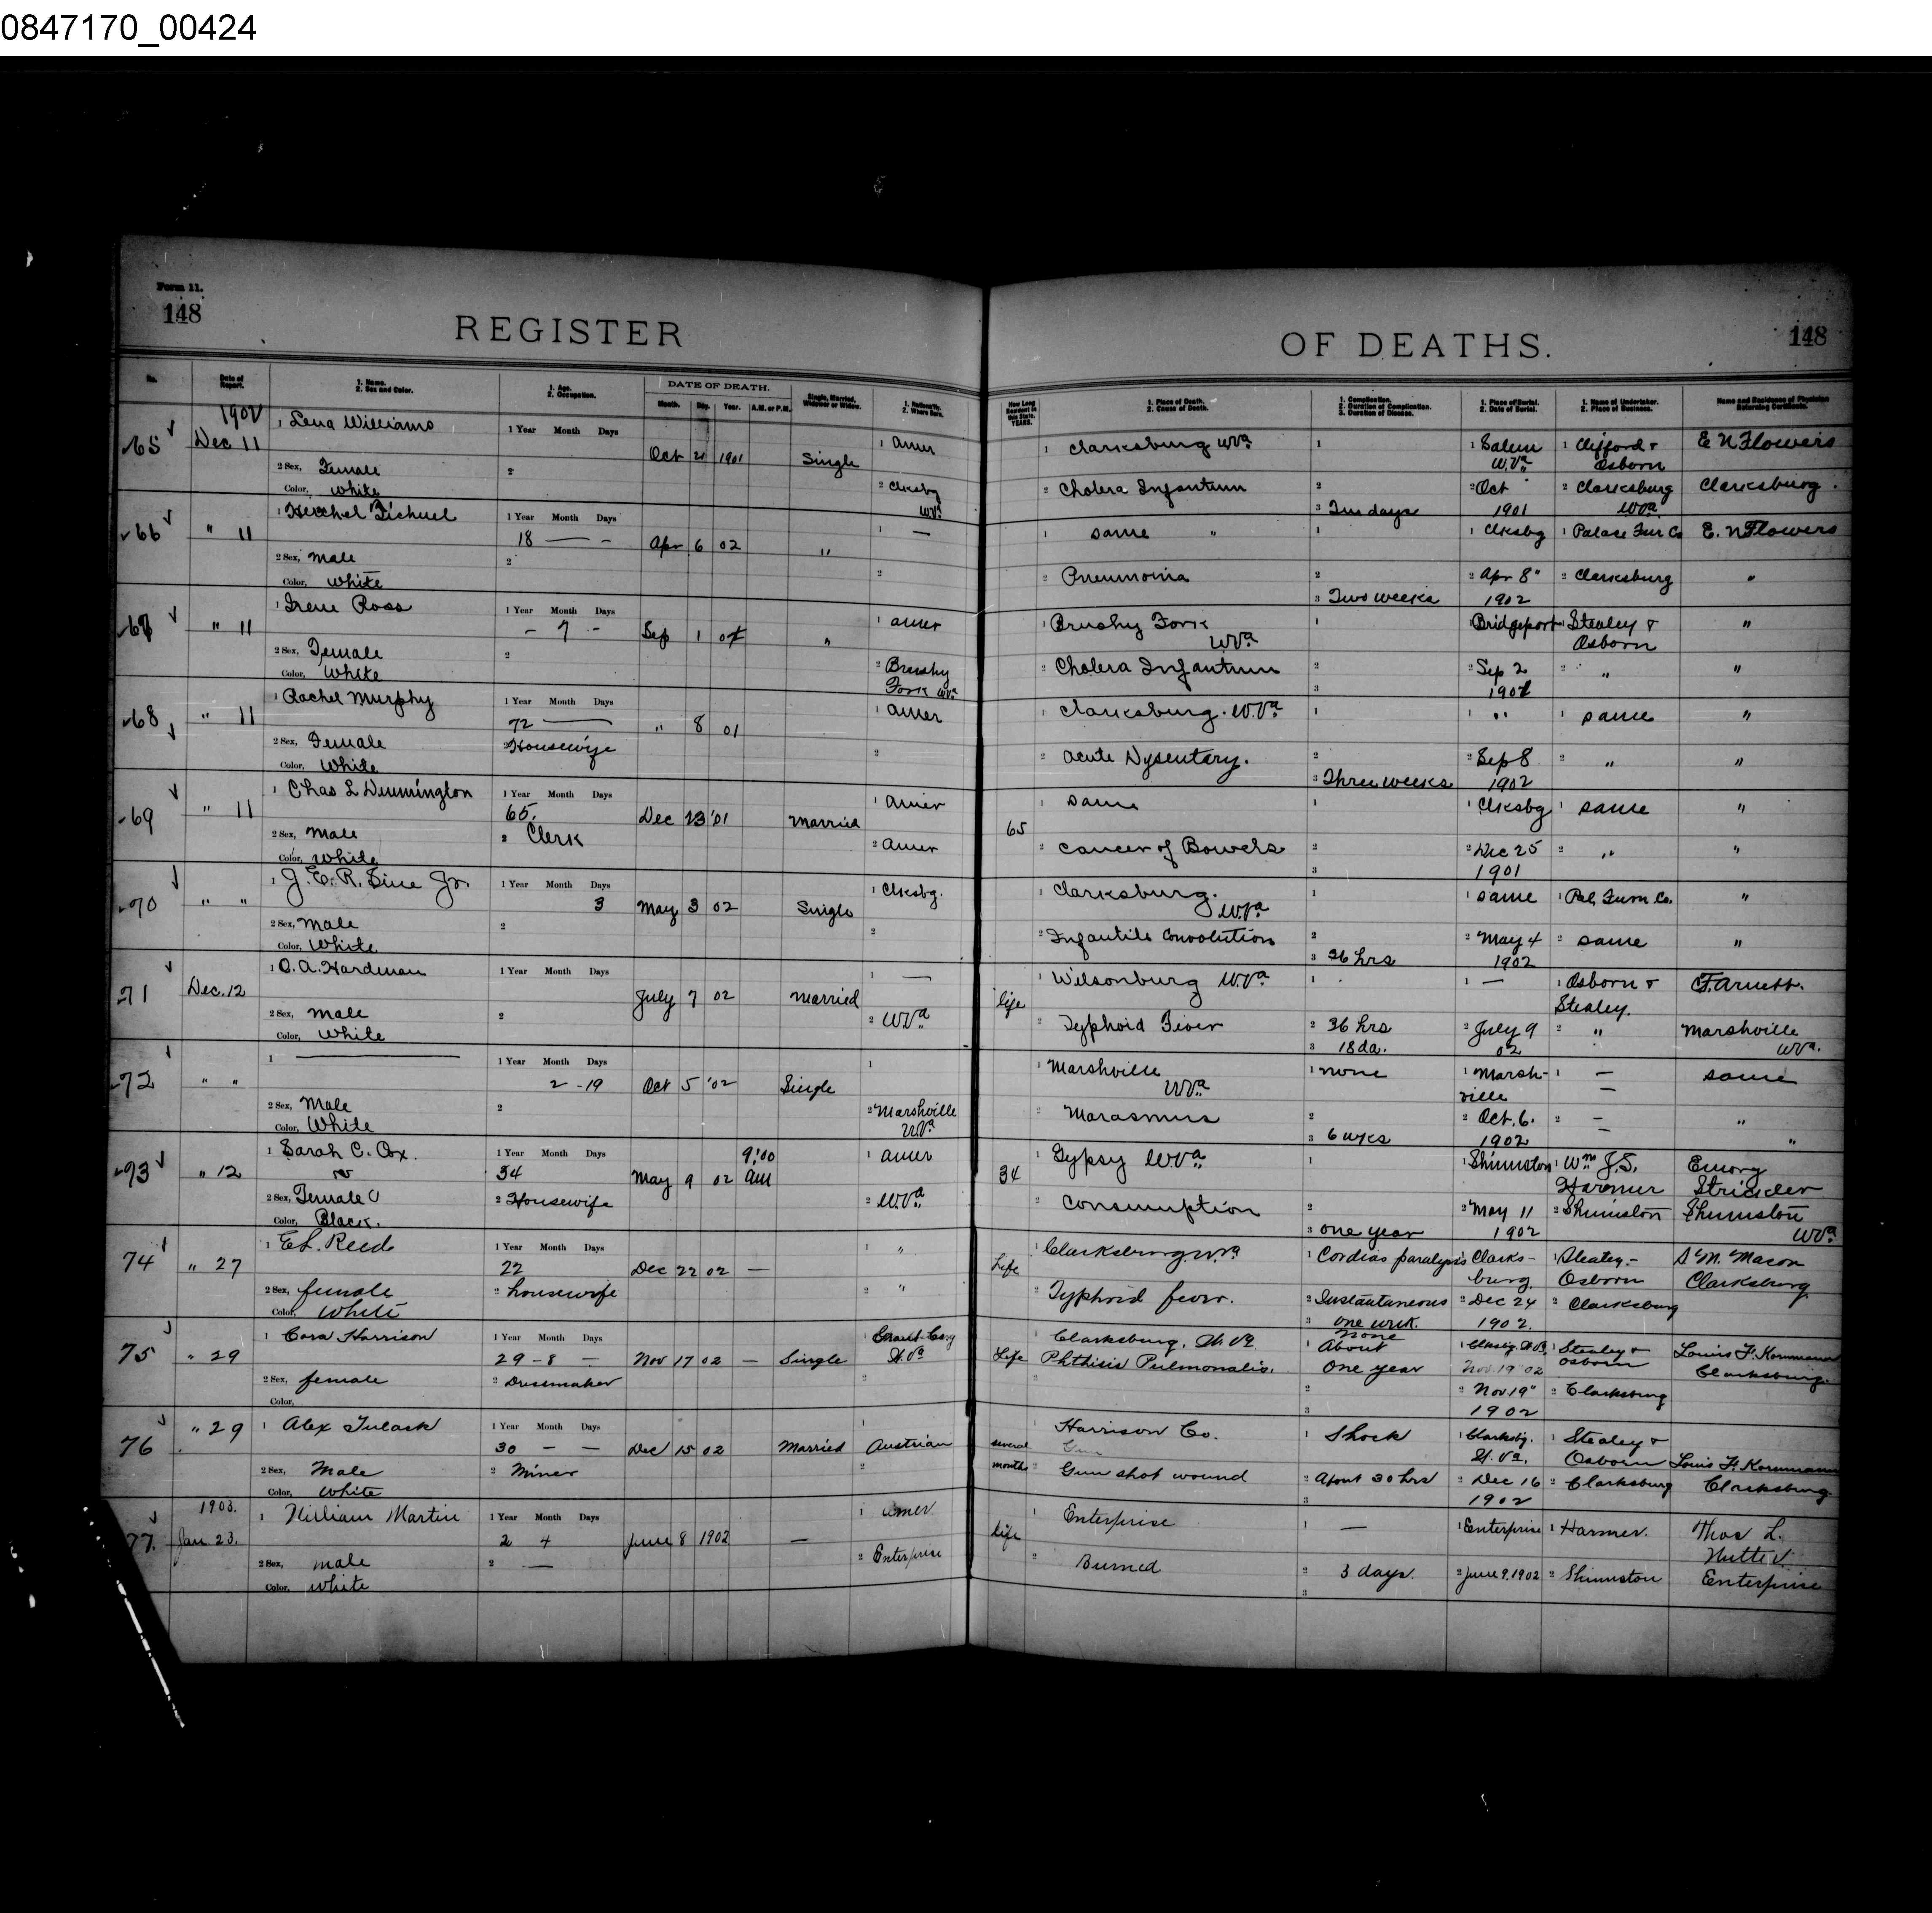 0847170_00424
Form 11.
148
REGISTER
OF DEATHS.
148
No.
Date of Report.
1. Name. 2. Sex and Color.
1. Age. 2. Occupation.
DATE OF DEATH.
Month. Day. Year. A.M. or P.M.
Single, Married, Widower or Widow.
1. Nationality. 2. Where Born.
How Long Resident in this State. YEARS.
1. Place of Death. 2. Cause of Death.
1. Complication. 2. Duration of Complication. 3. Duration of Disease.
1. Place of Burial. 2. Date of Burial.
1. Name of Undertaker. 2. Place of Business.
Name and Residence of Physician Returning Certificate.
1902
65 Dec 11 1 Lena Williams 1 Year Month Days Oct 21 1901 Single 1 Amer 1 Clarksburg W.Va 1 1 Salem W.Va 1 Clifford & Osborn E N Flowers
2 Sex, Female 2 2 Clksbg W.Va 2 Cholera Infantum 2 2 Oct 1901 2 Clarksburg W.Va Clarksburg
Color, White 3 days
66 " 11 1 1 Year Month Days 18 — - Apr 6 02 " 1 — 1 same " 1 1 Clksbg 1 Palace Fur Co E. N Flowers
2 Sex, Male 2 2 2 Pneumonia 2 2 Apr 8" 1902 2 Clarksburg "
Color, White 3 Two weeks
67 " 11 1 Irene Ross 1 Year Month Days - 7 - Sep 1 " 1 Amer 1 Brushy Fork W.Va 1 1 Bridgeport 1 Stealey & Osborn "
2 Sex, Female 2 2 Brushy Fork W.Va 2 Cholera Infantum 2 2 Sep 2 2 " "
Color, White 3
68 " 11 1 Rachel Murphy 1 Year Month Days 72 — " 8 01 1 Amer 1 Clarksburg. W.Va 1 1 " 1 same "
2 Sex, Female 2 Housewife 2 2 Acute Dysentary. 2 2 Sep 8 1902 2 " "
Color, White 3 Three weeks
69 " 11 1 Chas L Dunnington 1 Year Month Days 65. Dec 23 '01 Married 1 Amer 65 1 Same 1 1 Clksbg 1 same "
2 Sex, Male 2 Clerk 2 Amer 2 Cancer of Bowels 2 2 Dec 25 1901 2 " "
Color, White 3
70 " " 1 J. E. R. Sine Jr. 1 Year Month Days 3 May 3 02 Single 1 Clksbg. 1 Clarksburg. W.Va 1 1 same 1 Pal. Furn Co. "
2 Sex, Male 2 2 2 Infantile Convolution 2 2 May 4 1902 2 same "
Color, White 3 36 hrs
71 Dec. 12 1 O. A. Hardman 1 Year Month Days July 7 02 Married 1 — life 1 Wilsonburg W.Va 1 1 — 1 Osborn & Stealey. F. Arnett.
2 Sex, Male 2 2 W.Va 2 Typhoid Fever 2 36 hrs 2 July 9 02 2 " Marshville W.Va.
Color, White 3 18 da.
72 " " 1 — 1 Year Month Days 2 - 19 Oct 5 '02 Single 1 1 Marshville W.Va 1 none 1 Marshville 1 — same
2 Sex, Male 2 2 Marshville W.Va 2 Marasmus 2 2 Oct. 6. 1902 2 — " "
Color, White 3 6 wks
73 " 12 1 Sarah C. Cox. 1 Year Month Days 34 May 9 02 9:00 am 1 Amer 34 1 Gypsy W.Va 1 1 Shinnston 1 Wm J. S. Harmer Emory Strickler
2 Sex, Female 2 Housewife 2 W.Va 2 Consumption 2 2 May 11 1902 2 Shinnston Shinnston W.Va
Color, Black. 3 one year
74 " 27 1 E L. Reed 1 Year Month Days 22 Dec 22 02 — 1 " Life 1 Clarksburg W.Va 1 Cordiac paralysis 1 Clarksburg 1 Stealey - Osborn S. M. Mason Clarksburg
2 Sex, female 2 housewife 2 " 2 Typhoid fever. 2 Instantaneous 2 Dec 24 1902. 2 Clarksburg
Color, White 3 one week.
75 " 29 1 Cora Harrison 1 Year Month Days 29 - 8 — Nov 17 02 — Single 1 W.Va Life 1 Clarksburg, W.Va 1 none About One year 1 Clksbg W.Va. Nov. 19 02 1 Stealey & Osborn Louis F. Kornmann Clarksburg.
2 Sex, female 2 Dressmaker 2 2 Phthisis Pulmonalis. 2 2 Nov 19" 1902 2 Clarksburg
Color, 3
76 " 29 1 Alex 1 Year Month Days 30 — — Dec 15 02 Married 1 Austrian several months 1 Harrison Co. 1 Shock 1 Clarksbg. W.Va. 1 Stealey & Osborn Louis F. Kornmann
2 Sex, Male 2 Miner 2 2 Gun shot wound 2 About 30 hrs 2 Dec 16 1902 2 Clarksburg Clarksburg
Color, White 3
1903.
77. Jan 23. 1 William Martin 1 Year Month Days 2 4 June 8 1902 — 1 Amer life 1 Enterprise 1 — 1 Enterprise 1 Harmer. Thos L.
2 Sex, male 2 — 2 Enterprise 2 Burned 2 3 days. 2 June 9. 1902 2 Shinnston Enterprise
Color, White 3